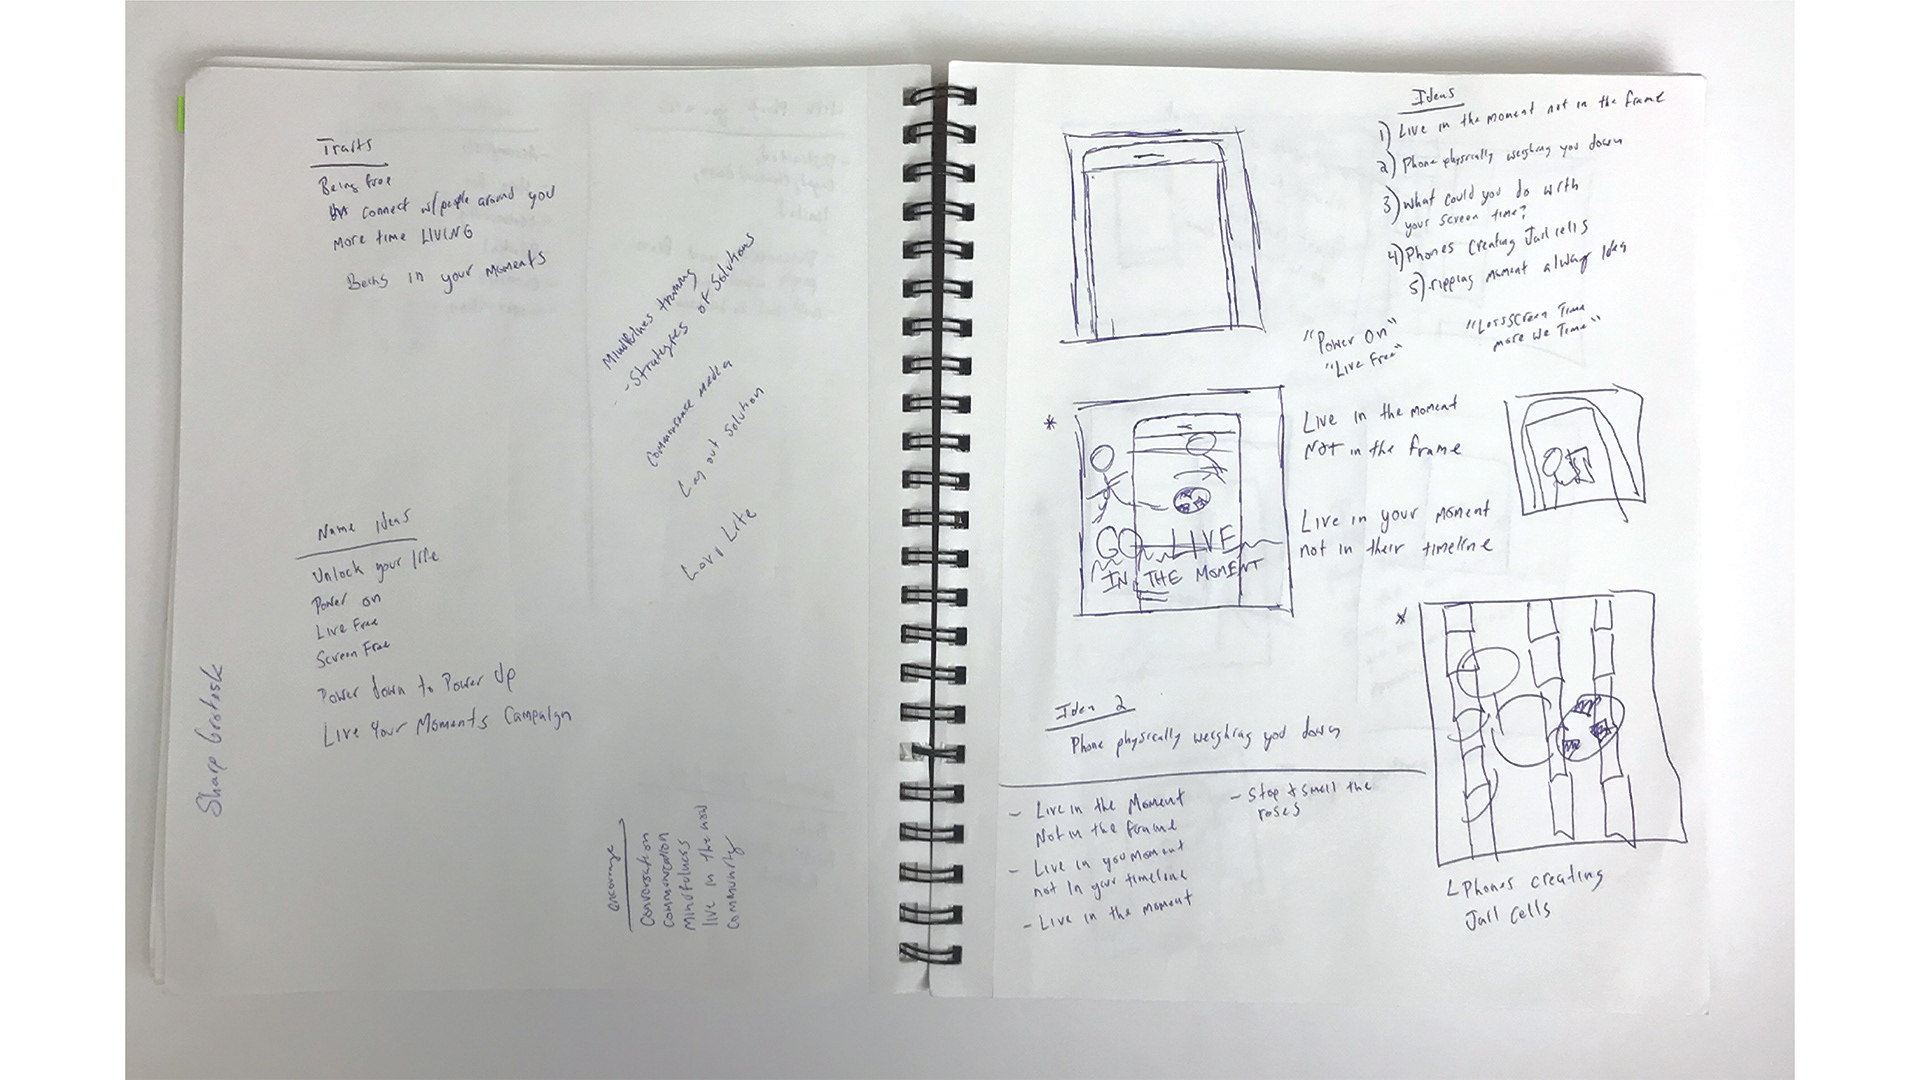 Traits
Being free
connect w/people around you
More time LIVING
Being in your moments
Mindfulness training
- Strategyes of Solutions
Commonsense media
Lay out solution
Name Ideas
Unlock your life
Power on
Live Free
Screen Free
Power down to Power Up
Live Your Moments Campaign
Sharp Grotesk
encourage
Conversation
communication
Mindfulness
live in the now
community
Ideas
1) Live in the moment not in the frame
2) Phone physically weighing you down
3) What could you do with
your screen time?
4) Phones creating Jail cells
5) ripping moment away Idea
"Power On"
"Live Free"
"Less Screen Time
more We Time"
*
GO LIVE
IN THE MOMENT
Live in the moment
Not in the frame
Live in your moment
not in their timeline
*
Idea 2
Phone physically weighing you down
- Live in the Moment
Not in the frame
- Live in you moment
not In your timeline
- Live in the moment
- Stop & smell the
roses
Phones creating
Jail Cells